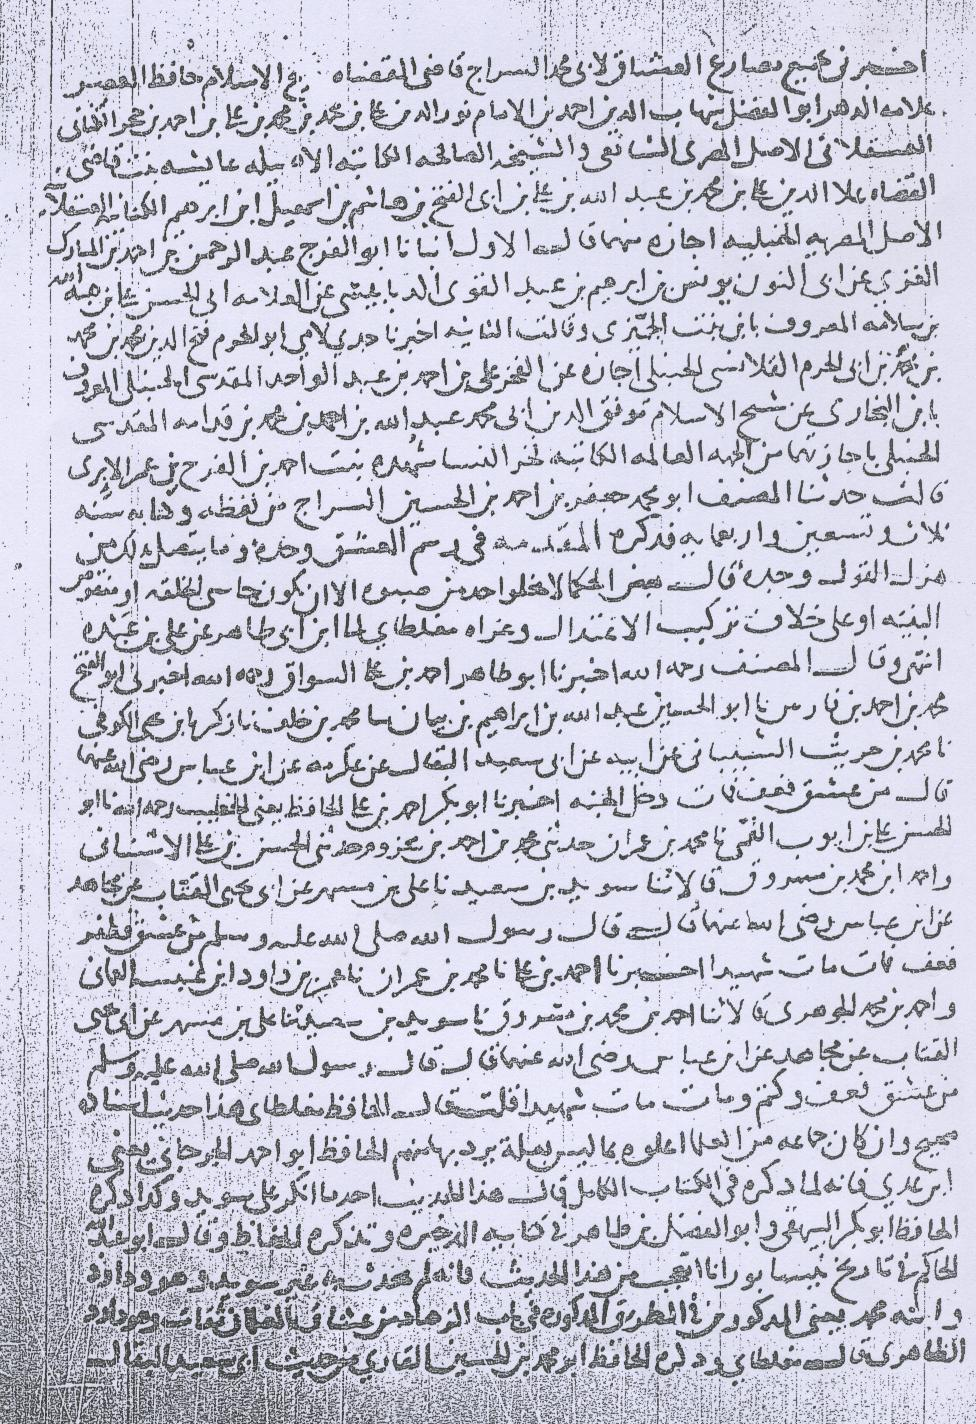 اخبرني بجميع مصارع العشاق لابي محمد السراج قاضي القضاه شيخ الاسلام حافظ العصر
علامه الدهر ابو الفضل شهاب الدين احمد بن الامام نور الدين علي بن محمد بن محمد بن علي بن احمد بن حجر الكناني
العسقلاني الاصل المصري الشافعي والشيخه الصالحه الكاتبه الاصيله عايشه بنت قاضي
القضاه علا الدين علي بن محمد بن عبد الله بن علي بن ابي الفتح بن هاشم بن اسمعيل بن ابرهيم الكنانيه العسقلانيه
الاصل المصريه الحنبليه اجازه منهما قال الاول انبانا ابو الفرج عبد الرحمن بن احمد بن المبارك
الغزي عن ابي النون يونس بن ابرهيم بن عبد القوي الدبابيسي عن العلامه ابي الحسن علي بن هبة الله
بن سلامه المعروف بابن بنت الجميزي وقالت الثانيه اخبرنا جدي لامي ابو الحرم فتح الدين محمد بن محمد
بن محمد بن ابي الحرم القلانسي الحنبلي اجازه عن الفخر علي بن احمد بن عبد الواحد المقدسي الحنبلي المعروف
بابن البخاري عن شيخ الاسلام موفق الدين ابي محمد عبد الله بن احمد بن محمد بن قدامه المقدسي
الحنبلي باجازتهما من الجهه العالمه الكاتبه فخر النسا شهده بنت احمد بن الفرج بن عمر الابري
قالت حدثنا المصنف ابو محمد جعفر بن احمد بن الحسين السراج من لفظه وكتابه سنه
ثلاث وتسعين واربعمايه فذكره المقدمه في رسم العشق وحده وما يتصل بذلك من
هزل القول وجده قال بعض الحكما لا يخلو احد من صبوه الا ان يكون جاسي الخلقه او منقوص
البنيه او على خلاف تركيب الاعتدال وعزاه مغلطاي لما ابن ابي طاهر عن علي بن عبده
انتهى وقال المصنف رحمه الله اخبرنا ابو طاهر احمد بن علي السواق رحمه الله اخبرني ابو الفتح
محمد بن احمد بن فارس نا ابو الحسين عبد الله بن ابراهيم بن بيان نا محمد بن خلف نا زكريا بن يحيى الكوفي
نا محمد بن حريث الشيباني عن ابيه عن ابي سعيد البقال عن عكرمه عن ابن عباس رضي الله عنهما
قال من عشق فعف فمات دخل الجنه اخبرنا ابو بكر احمد بن علي الحافظ يعني الخطيب رحمه الله نا ابو
الحسن علي بن ايوب القمي نا محمد بن عمران حدثني محمد بن احمد بن مخزوم حدثني الحسن بن علي الاشناني
واحمد ابن محمد بن مسروق قالا ثنا سويد بن سعيد نا علي بن مسهر عن ابي يحيى القتات عن مجاهد
عن ابن عباس رضي الله عنهما قال قال رسول الله صلى الله عليه وسلم من عشق فظفر
فعف فمات مات شهيدا اخبرنا احمد بن علي نا محمد بن عمران نا داود ابن العماني
واحمد بن محمد الجوهري قالا ثنا احمد بن محمد بن مسروق نا سويد بن سعيد ثنا علي بن مسهر عن ابي يحيى
القتات عن مجاهد عن ابن عباس رضي الله عنهما قال قال رسول الله صلى الله عليه وسلم
من عشق فعف وكتم ومات مات شهيدا قلت قال الحافظ مغلطاي هذا حديث اسناده
صحيح وان كان جماعه من العلما اعلوه بما ليس بعلة يرد بها منهم الحافظ ابو احمد الجرجاني يعني
ابن عدي فانه لما ذكره في الكتاب الكامل قال هذا الحديث احد ما انكر على سويد وكذا ذكره
الحافظ ابو بكر البيهقي وابو الفضل بن طاهر في كتابيه الذخيره وتذكره الحفاظ وقال ابو عبد الله
الحاكم في تاريخ نيسابور انا اتعجب من هذا الحديث فانه لم يحدث به غير سويد وهو وداود
وابنه محمد يعني المذكورين في الطريق المذكوره في باب الزهاد من عشاق ثقات وهو داود
الظاهري قال مغلطاي وذكره الحافظ ابو محمد بن الحسين القاري من حديث ابي سعيد البقال